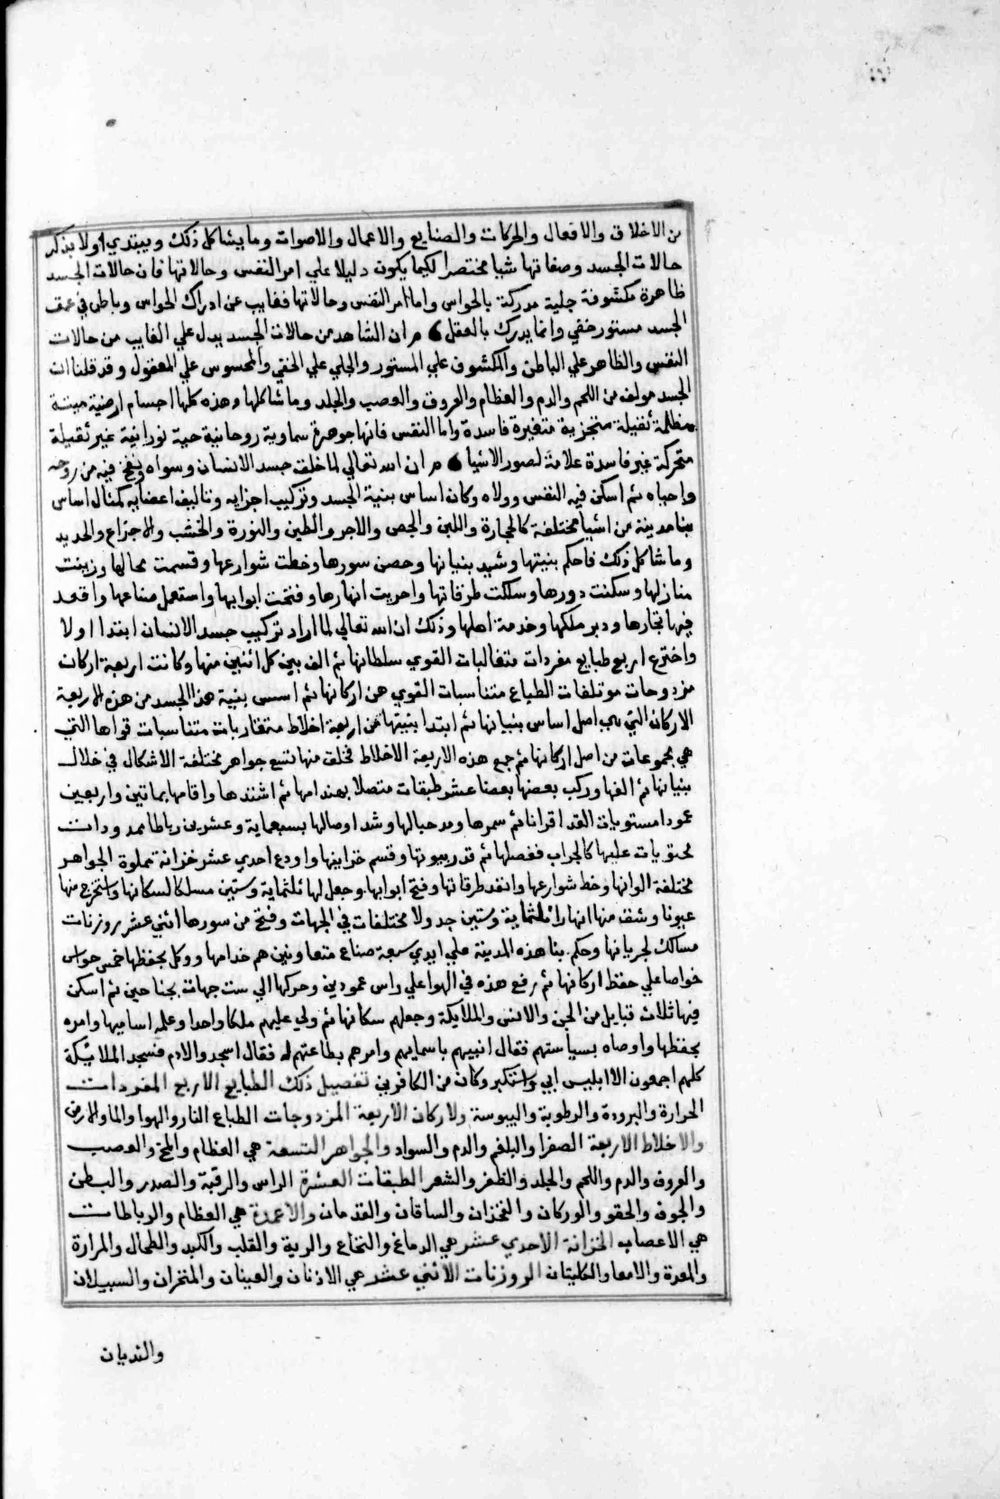 من الاخلاق والافعال والحركات والصنايع والاعمال والاصوات وما يشاكل ذلك ويبتدي اولا بذكر
حالات الجسد وصفاتها شيا مختصرا لكيما يكون دليلا علي امر النفس وحالاتها فان حالات الجسد
ظاهرة مكشوفة جلية مدركة بالحواس واما امر النفس وحالاتها فغايب عن ادراك الحواس وباطن في عمق
الجسد مستور خفي وانما يدرك بالعقل ثم ان الشاهد من حالات الجسد يدل علي الغايب من حالات
النفس والظاهر علي الباطن والمكشوف علي المستور والجلي علي الخفي والمحسوس علي المعقول وقد قلنا ان
الجسد مولف من اللحم والدم والعظام والعروق والعصب والجلد وما شاكلها وهذه كلها اجسام ارضية ميتة
مظلمة ثقيلة متجزية متغيرة فاسدة واما النفس فانها جوهرة سماوية روحانية حية نورانية غير ثقيلة
متحركة غير فاسدة علامة لصور الاشيا ثم ان الله تعالي لما خلق جسد الانسان وسواه ونفخ فيه من روحه
واحياه ثم اسكن فيه النفس وولاه وكان اساس بنية الجسد وتركيب اجزايه وتاليف اعضايه كمثال اساس
بنا مدينة من اشيا مختلفة كالحجارة واللبن والجص والاجر والطين والنورة والخشب والاجذاع والحديد
وما شاكل ذلك فاحكم بنيتها وشيد بنيانها وحصن سورها وخطت شوارعها وقسمت محالها وزينت
منازلها وسكنت دورها وسلكت طرقاتها واجريت انهارها وفتحت ابوابها واستعمل صناعها واقعد
فيها تجارها ودبر ملكها وخدمة اهلها وذلك ان الله تعالي لما اراد تركيب جسد الانسان ابتدا اولا
واخترع اربع طبايع مفردات متغالبات القوي سلطانها ثم الف بين كل اثنين منها وكانت اربعة اركان
مزدوجات موتلفات الطباع متناسبات القوي هن اركانها ثم اسس بنية هذا الجسد من هذه الاربعة
الاركان التي هي اصل اساس بنيانها ثم ابتدا بنيتها من اربعة اخلاط متقاربات متناسبات قواها التي
هي مجموعات من اصل اركانها ثم جمع هذه الاربعة الاخلاط فخلق منها تسع جواهر مختلفة الاشكال في خلال
بنيانها ثم الفها وركب بعضها بعضا عشر طبقات متصلا بهندامها ثم اشتدها واقامها بماتين واربعين
عمودا مستويات القد اقرانا ثم سمرها ومد حبالها وشد اوصالها بسبعماية وعشرين رباطا ممدودات
محتويات عليها كالجراب ففصلها ثم قدر بيوتها وقسم خزاينها واودع احدي عشر خزانة مملوة الجواهر
مختلفة الوانها وخط شوارعها وانفد طرقاتها وفتح ابوابها وجعل لها ثلثماية وستين مسلكا لسكانها واستخرج منها
عيونا وشق منها انهارا ثلثماية وستين جدولا مختلفات في الجهات وفتح من سورها اثني عشر روزنات
مسالك لجريانها وحكم بنا هذه المدينة علي ايدي سبعة صناع متعاونين هم خدامها ووكل بحفظها خمس حواس
خواصا علي حفظ اركانها ثم رفع هذه في الهوا علي راس عمودين وحركها الي ست جهات بجناحين ثم اسكن
فيها ثلاث قبايل من الجن والانس والملايكة وجعلهم سكانها ثم ولي عليهم ملكا واحدا وعلمه اساميها وامره
بحفظها واوصاه بسياستهم فقال انبيهم باسمايهم وامرهم بطاعتهم له فقال اسجدوا لادم فسجد الملائيكة
كلهم اجمعون الا ابليس ابي واستكبر وكان من الكافرين تفصيل ذلك الطبايع الاربع المفردات
الحرارة والبرودة والرطوبة واليبوسة ولاركان الاربعة المزدوجات الطباع النار والهوا والما والارض
والاخلاط الاربعة الصفرا والبلغم والدم والسواد والجواهر التسعة هي العظام والمخ والعصب
والعروق والدم واللحم والجلد والظفر والشعر الطبقات العشرة الراس والرقبة والصدر والبطن
والجوف والحقو والوركان والفخذان والساقان والقدمان والاعمدة هي العظام والرباطات
هي الاعصاب الخزانة الاحدي عشر هي الدماغ والنخاع والرية والقلب والكبد والطحال والمرارة
والمعدة والامعا والكليتان الروزنات الاثني عشر هي الاذنان والعينان والمنخران والسبيلان
والثديان